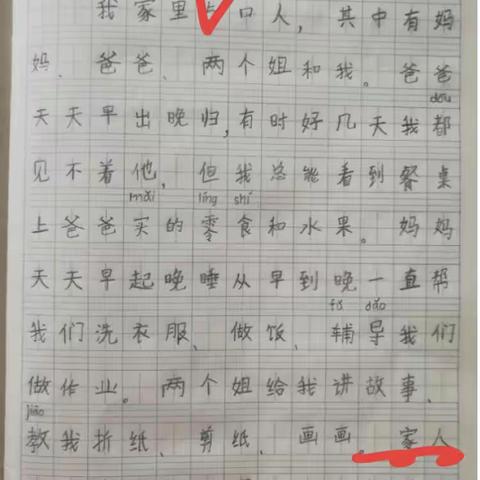 我家里口人，其中有妈
妈、爸爸、两个姐和我。爸爸
dōu
天天早出晚归，有时好几天我都
见不着他，但我总能看到餐桌
mǎi líng shí
上爸爸买的零食和水果。妈妈
天天早起晚睡从早到晚一直帮
fǔ dǎo
我们洗衣服、做饭、辅导我们
做作业。两个姐给我讲故事、
jiāo
教我折纸、剪纸、画画。家人